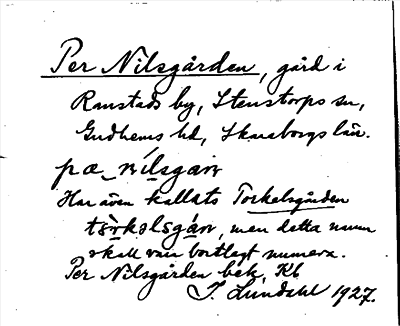 Per Nilsgården, gård i
Ranstads by, Stenstorps sn,
Gudhems hd, Skaraborgs län.
pæ_nílsgaɳ
Har även kallats Torkelsgården
men detta namn
skall vara bortlagt numera.
Per Nilsgården bek, Kb
J. Lundahl 1927.